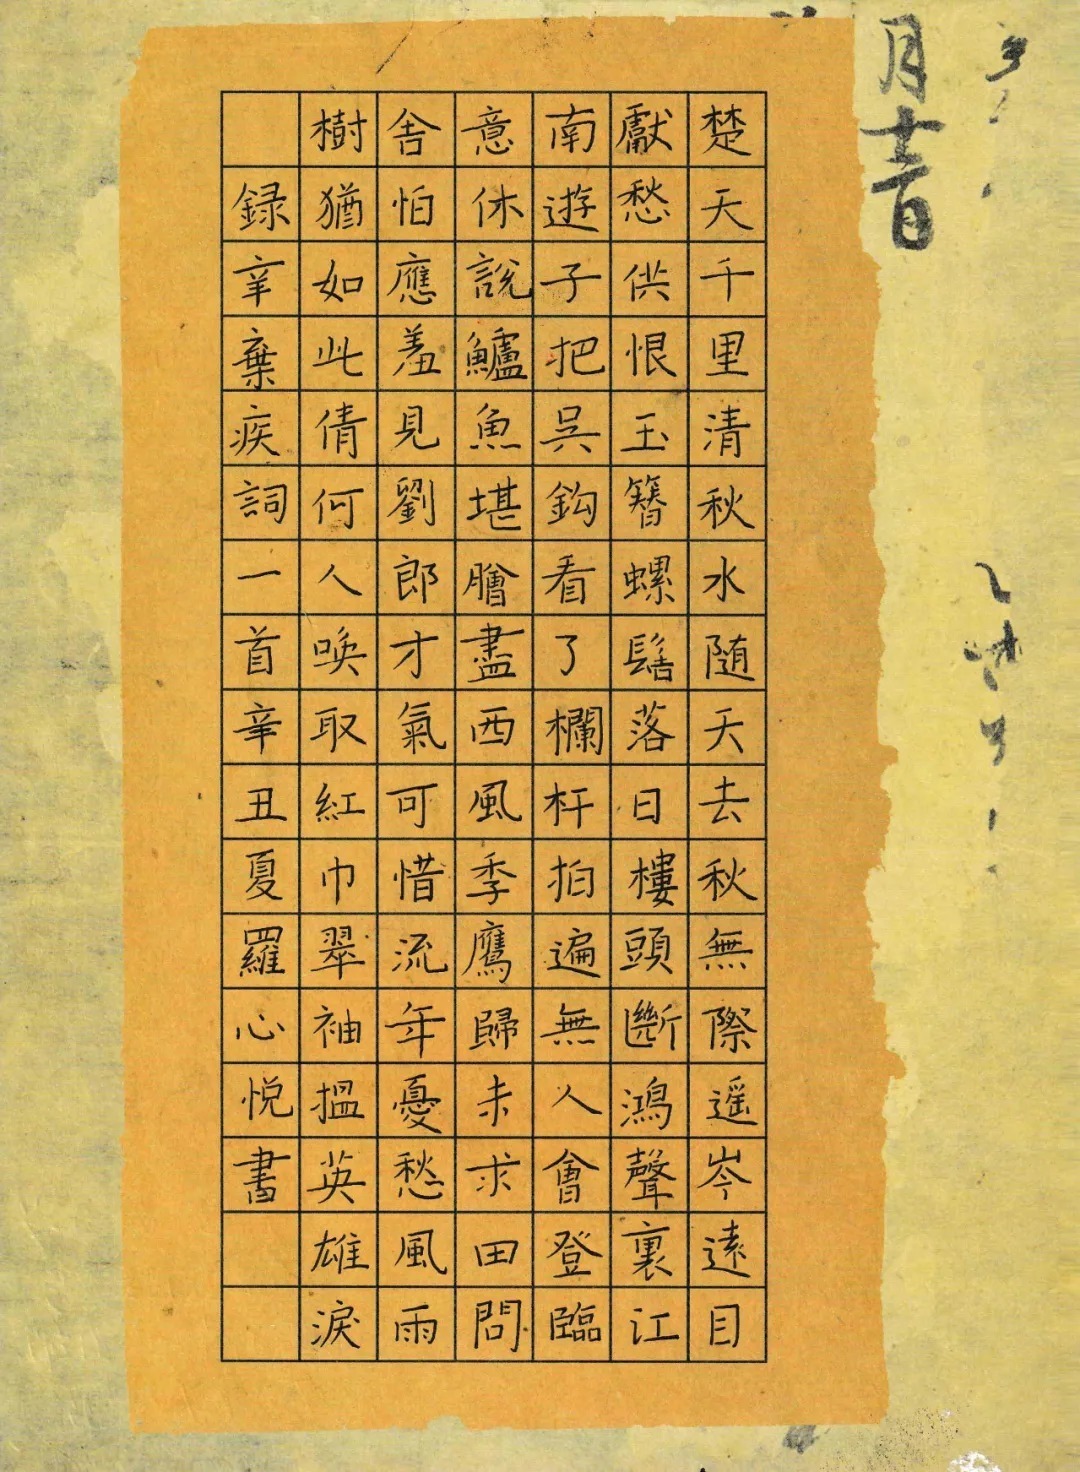 月
楚天千里清秋水随天去秋無際遥岑遠目
獻愁供恨玉簪螺髻落日樓頭斷鴻聲裏江
南遊子把吳鈎看了欄杆拍遍無人會登臨
意休說鱸魚堪膾盡西風季鷹歸未求田問
舍怕應羞見劉郎才氣可惜流年憂愁風雨
樹猶如此倩何人喚取紅巾翠袖搵英雄淚
録辛棄疾詞一首辛丑夏羅心悦書